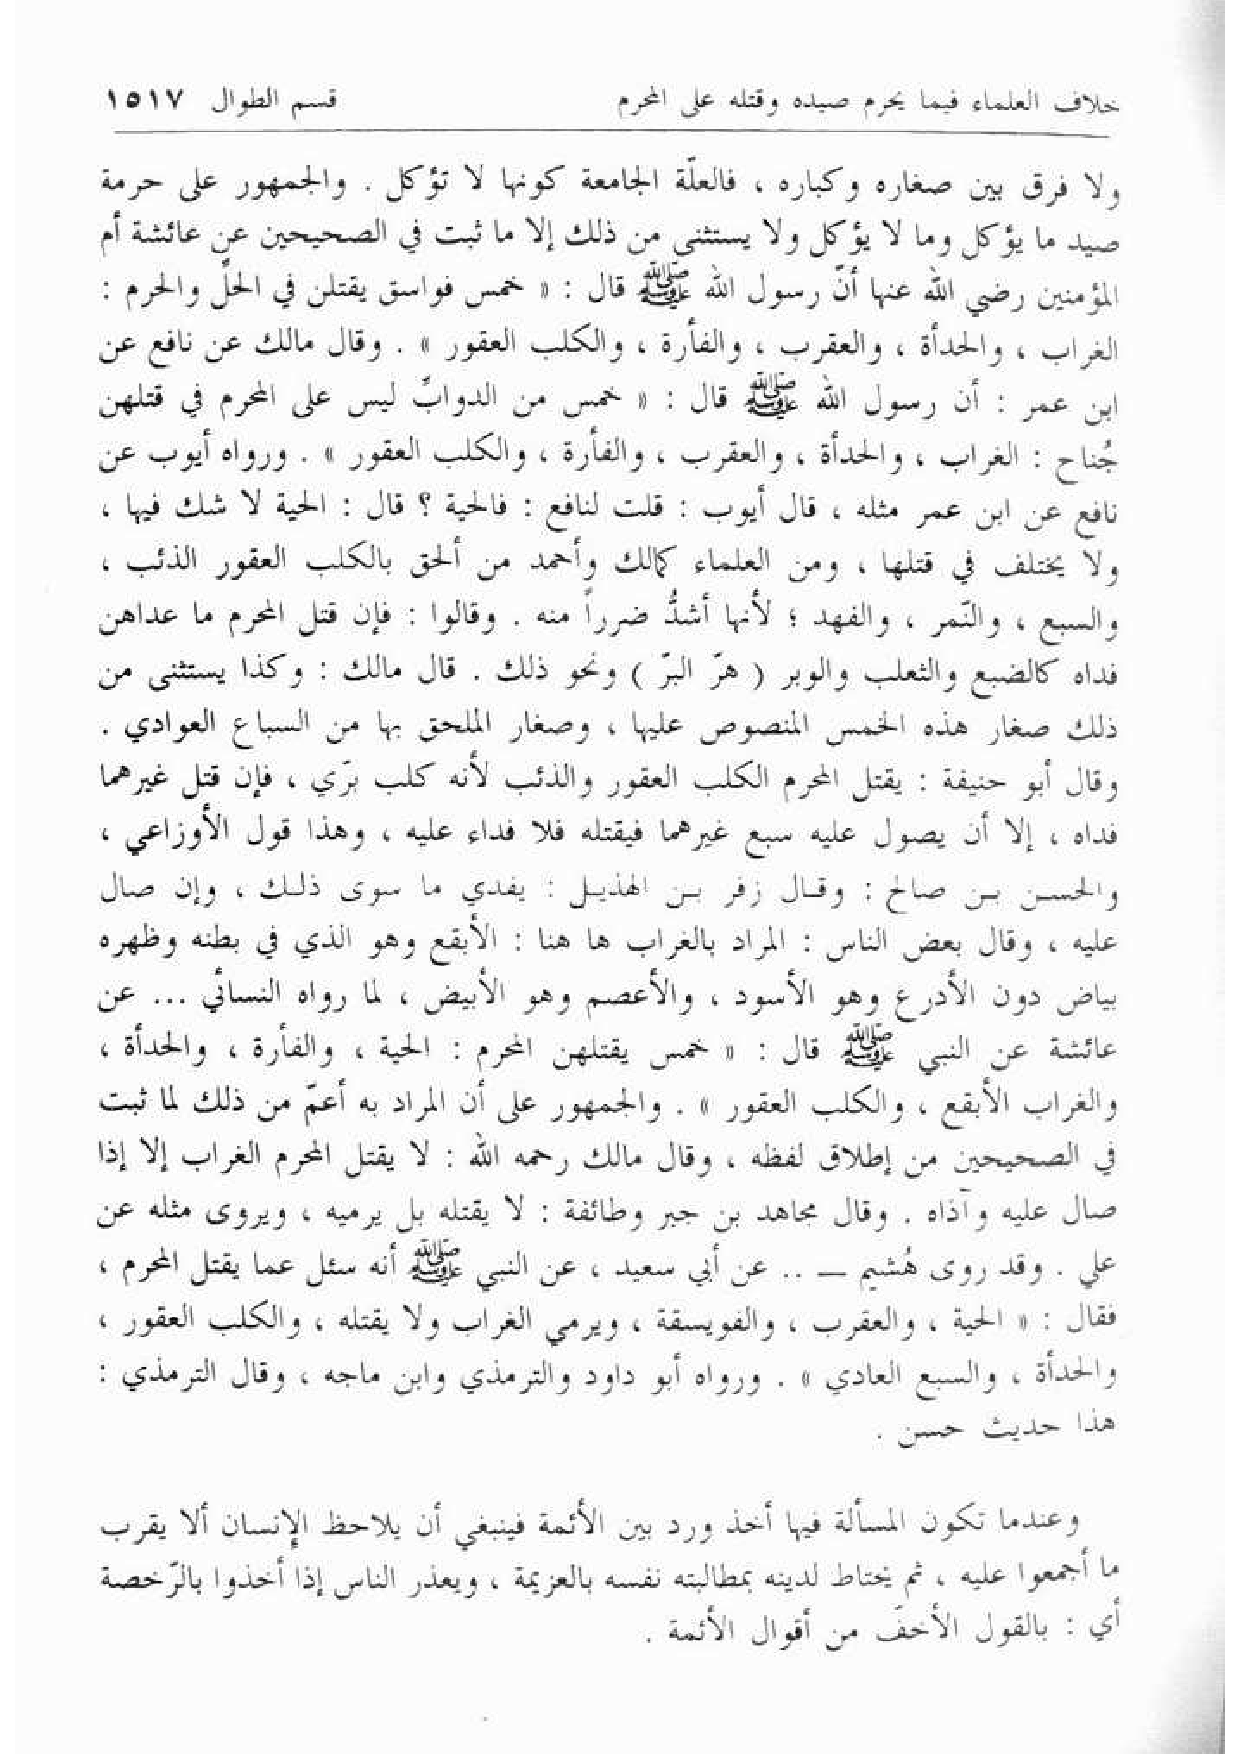 خلاف العلماء فيما يحرم صيده وقتله على المحرم قسم الطوال ١٥١٧
ولا فرق بين صغاره وكباره ، فالعلّة الجامعة كونها لا تؤكل . والجمهور على حرمة
صيد ما يؤكل وما لا يؤكل ولا يستثنى من ذلك إلا ما ثبت في الصحيحين عن عائشة أم
المؤمنين رضي الله عنها أنّ رسول الله ﷺ قال : « خمس فواسق يقتلن في الحلِّ والحرم :
الغراب ، والحدأة ، والعقرب ، والفأرة ، والكلب العقور » . وقال مالك عن نافع عن
ابن عمر : أن رسول الله ﷺ قال : « خمس من الدوابِّ ليس على المحرم في قتلهن
جُناح : الغراب ، والحدأة ، والعقرب ، والفأرة ، والكلب العقور » . ورواه أيوب عن
نافع عن ابن عمر مثله ، قال أيوب : قلت لنافع : فالحية ؟ قال : الحية لا شك فيها ،
ولا يختلف في قتلها ، ومن العلماء كمالك وأحمد من ألحق بالكلب العقور الذئب ،
والسبع ، والنّمر ، والفهد ؛ لأنها أشدُّ ضرراً منه . وقالوا : فإن قتل المحرم ما عداهن
فداه كالضبع والثعلب والوبر ( هرّ البرّ ) ونحو ذلك . قال مالك : وكذا يستثنى من
ذلك صغار هذه الخمس المنصوص عليها ، وصغار الملحق بها من السباع العوادي .
وقال أبو حنيفة : يقتل المحرم الكلب العقور والذئب لأنه كلب برّي ، فإن قتل غيرهما
فداه ، إلا أن يصول عليه سبع غيرهما فيقتله فلا فداء عليه ، وهذا قول الأوزاعي ،
والحسن بن صالح : وقال زفر بن الهذيل : يفدي ما سوى ذلك ، وإن صال
عليه ، وقال بعض الناس : المراد بالغراب ها هنا : الأبقع وهو الذي في بطنه وظهره
بياض دون الأدرع وهو الأسود ، والأعصم وهو الأبيض ، لما رواه النسائي ... عن
عائشة عن النبي ﷺ قال : « خمس يقتلهن المحرم : الحية ، والفأرة ، والحدأة ،
والغراب الأبقع ، والكلب العقور » . والجمهور على أن المراد به أعمّ من ذلك لما ثبت
في الصحيحين من إطلاق لفظه ، وقال مالك رحمه الله : لا يقتل المحرم الغراب إلا إذا
صال عليه وآذاه . وقال مجاهد بن جبر وطائفة : لا يقتله بل يرميه ، ويروى مثله عن
علي . وقد روى هُشيم ــ .. عن أبي سعيد ، عن النبي ﷺ أنه سئل عما يقتل المحرم ،
فقال : « الحية ، والعقرب ، والفويسقة ، ويرمي الغراب ولا يقتله ، والكلب العقور ،
والحدأة ، والسبع العادي » . ورواه أبو داود والترمذي وابن ماجه ، وقال الترمذي :
هذا حديث حسن .
وعندما تكون المسألة فيها أخذ ورد بين الأئمة فينبغي أن يلاحظ الإنسان ألا يقرب
ما أجمعوا عليه ، ثم يحتاط لدينه بمطالبته نفسه بالعزيمة ، ويعذر الناس إذا أخذوا بالرّخصة
أي : بالقول الأخفَ من أقوال الأئمة .